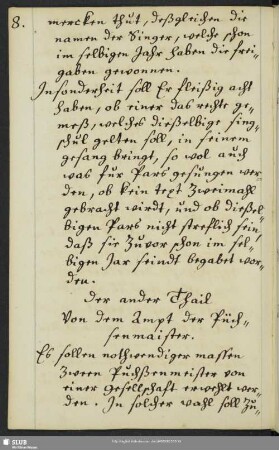 8. mercken thut, deßgleichen die
namen der Singer, welche schon
im selbigen Jahr haben die frei-
gaben gewonnen.
Insonderheit soll Er fleißig acht
haben, ob einer das rechte ge-
meß, welches dieselbige sing-
schul gelten soll, in seinem
gesang bringt, so wol auch
was für Pars gesungen wer-
den, ob kein text Zweimahl
gebracht wirdt, und ob dießel-
bigen Pars nicht streflich sein,
daß sie Zuvor schon im sel-
bigen Jar seindt begabet wor-
den.
Der ander Thail
Von dem Ampt der Püch-
senmaister.
Es sollen nothwendiger massen
Zween Püchßenmeister von
einer Gesellschaft erwehlt wer-
den. In solcher wahl soll
zu-
SLUB